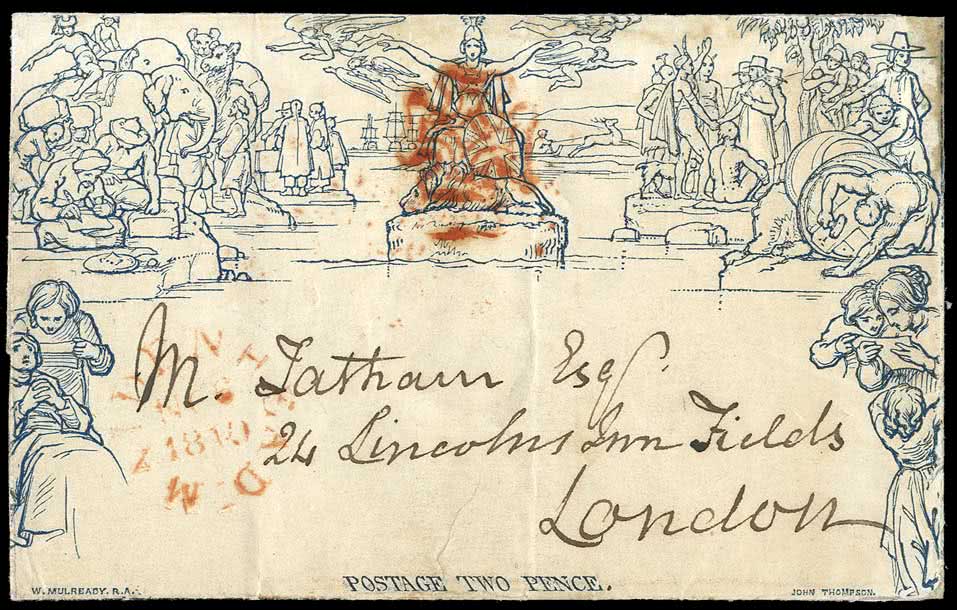 M. Tatham Esq.
24 Lincolns Inn Fields
London
POSTAGE TWO PENCE.
W. MULREADY. R.A.
JOHN THOMPSON.